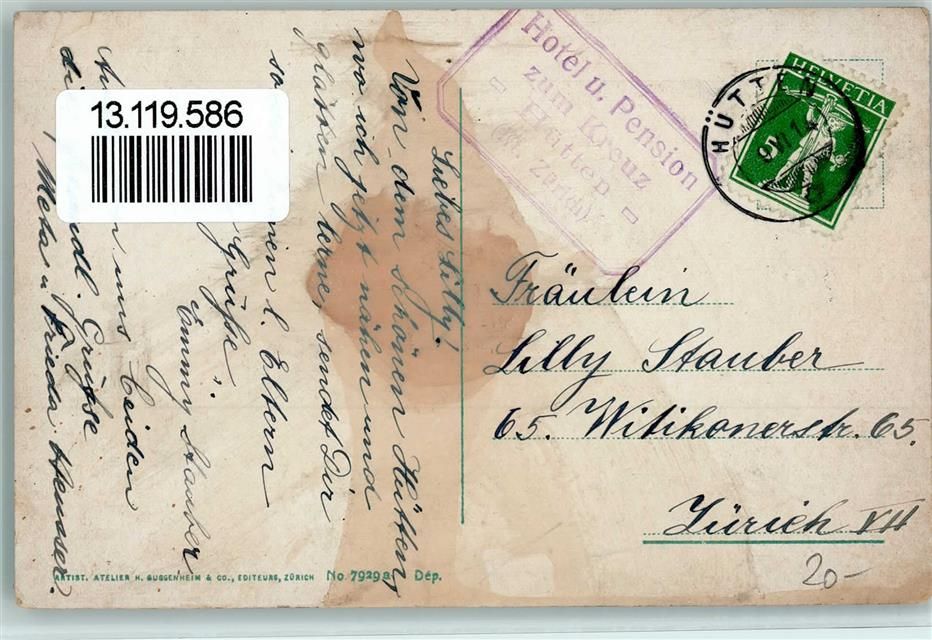 13.119.586
Hotel u. Pension
zum Kreuz
- Hütten -
(Kt. Zürich)
HÜTTEN
HELVETIA
5
Liebes Lilly!
Von dem schönen Hütten,
wo ich jetzt nähen und
glätten lerne, sendet Dir
so l. Eltern
Grüße
Emmy Stauber
uns beiden
Grüsse
Meta u Frieda Hausser.
Fräulein
Lilly Stauber
65. Witikonerstr. 65.
Zürich VII
20-
ARTIST. ATELIER H. GUGGENHEIM & CO., EDITEURS, ZÜRICH No. 7929a Dép.